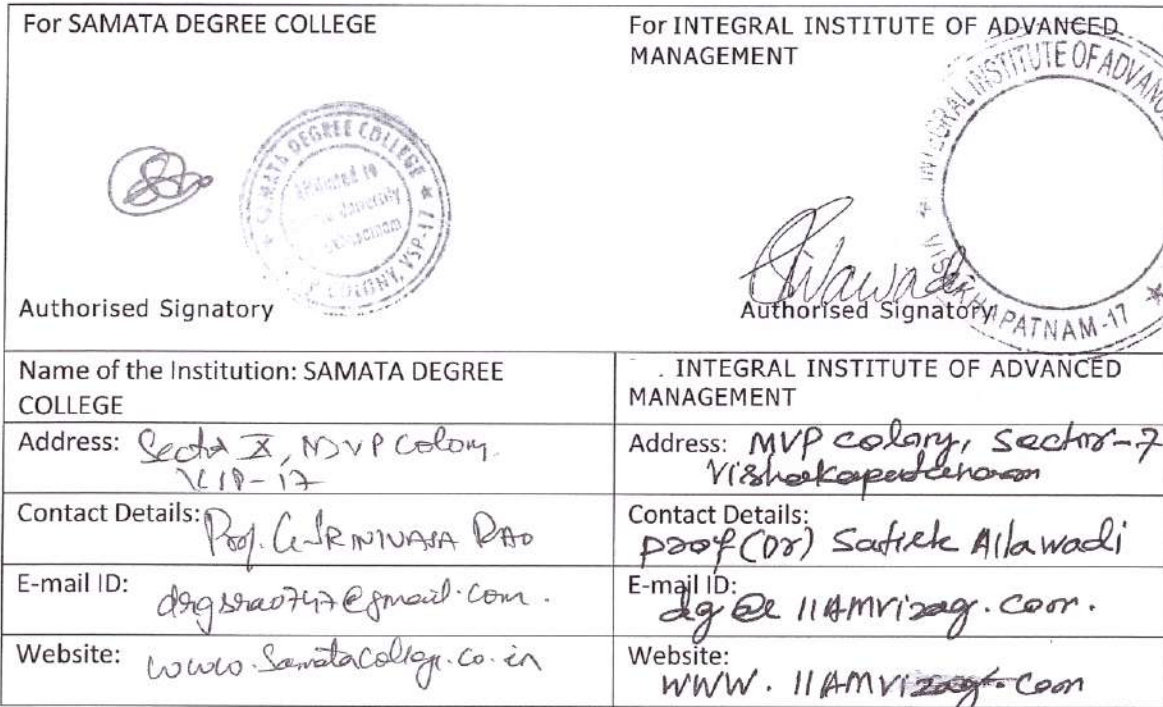 For SAMATA DEGREE COLLEGE
SAMATA DEGREE COLLEGE
COLONY, VSP-17
Authorised Signatory
For INTEGRAL INSTITUTE OF ADVANCED
MANAGEMENT
INTEGRAL INSTITUTE OF ADVANC
VISAKHAPATNAM-17
Authorised Signatory
Name of the Institution: SAMATA DEGREE
COLLEGE
. INTEGRAL INSTITUTE OF ADVANCED
MANAGEMENT
Address: Sector X, MVP Colony
-17
Address: MVP colony, Sector-7
Contact Details: Prof. G. SRINIVASA RAO
Contact Details:
prof (Dr) Allawadi
E-mail ID: drgsrao747@gmail.com.
E-mail ID:
dg @ IIAMvizag.com.
Website: www.Samatacollege.co.in
Website:
WWW. IIAMvizag.com